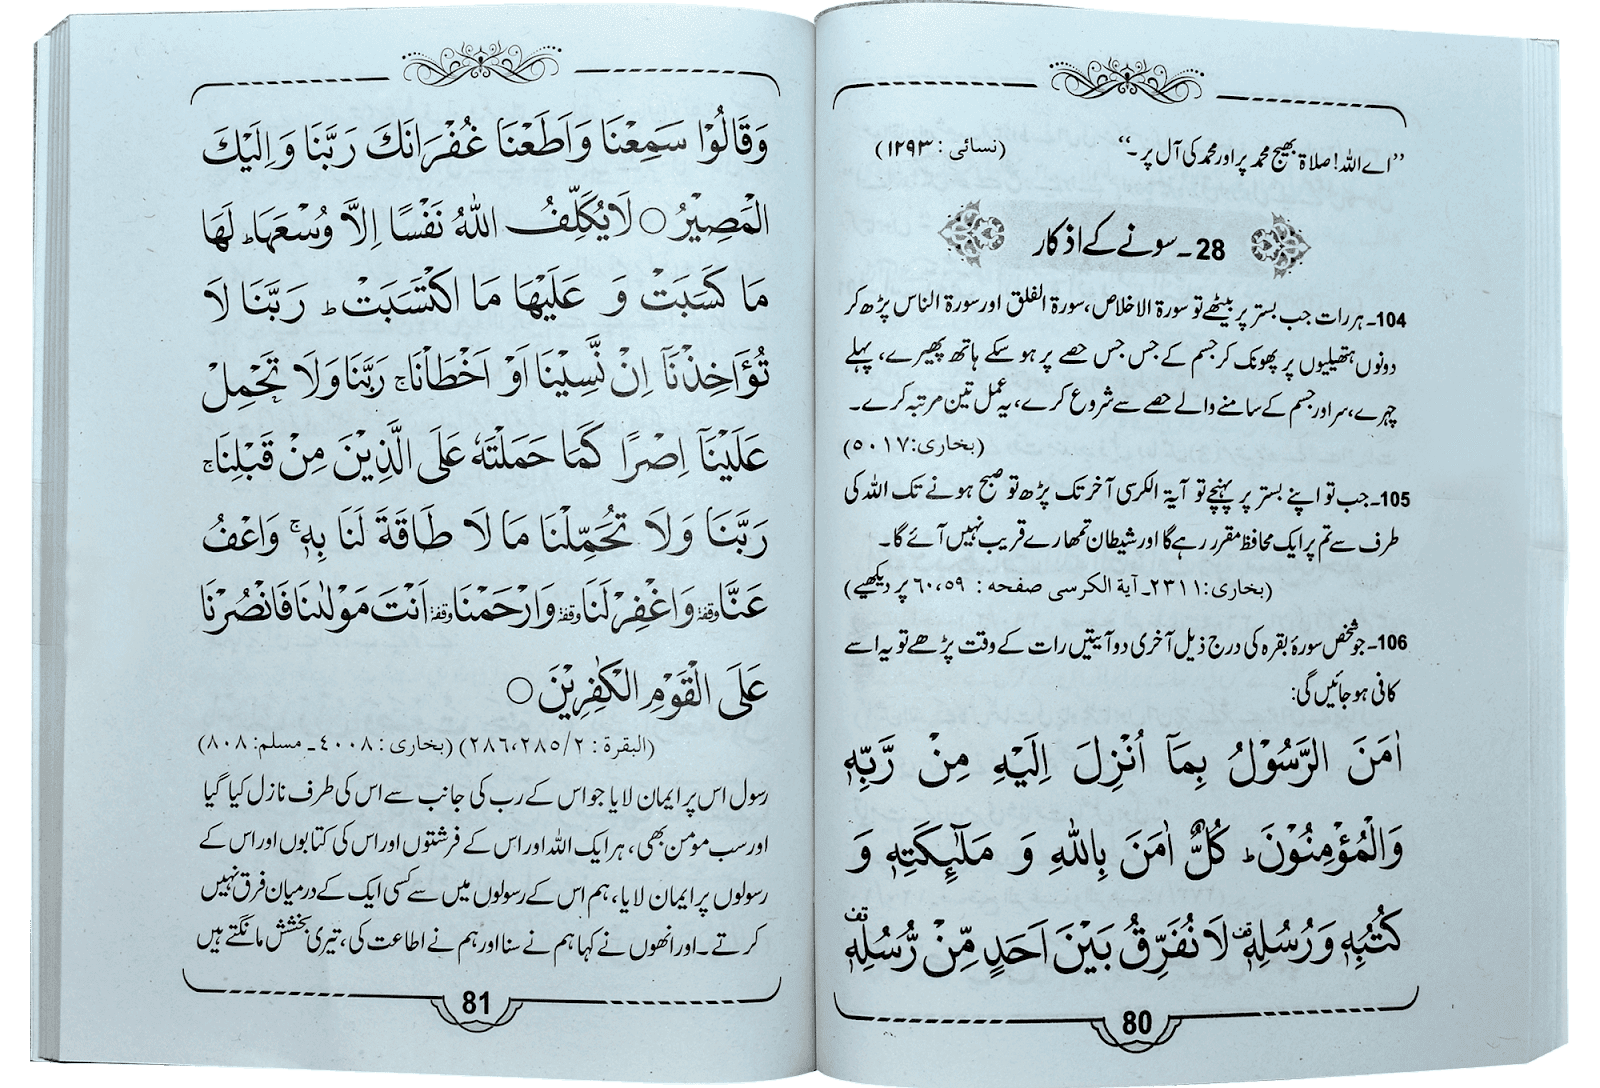 ”اے اللہ! صلاۃ بھیج محمد پر اور محمد کی آل پر۔“ (نسائی : ۱۲۹۳)
28۔ سونے کے اذکار
104۔ ہر رات جب بستر پر بیٹھے تو سورۃ الاخلاص، سورۃ الفلق اور سورۃ الناس پڑھ کر
دونوں ہتھیلیوں پر پھونک کر جسم کے جس جس حصے پر ہو سکے ہاتھ پھیرے، پہلے
چہرے، سر اور جسم کے سامنے والے حصے سے شروع کرے، یہ عمل تین مرتبہ کرے۔
(بخاری: ۵۰۱۷)
105۔ جب تو اپنے بستر پر پہنچے تو آیۃ الکرسی آخر تک پڑھ تو صبح ہونے تک اللہ کی
طرف سے تم پر ایک محافظ مقرر رہے گا اور شیطان تمھارے قریب نہیں آئے گا۔
(بخاری: ۲۳۱۱۔ آیۃ الکرسی صفحہ : ۶۰،۵۹ پر دیکھیے)
106۔ جو شخص سورۂ بقرہ کی درج ذیل آخری دو آیتیں رات کے وقت پڑھے تو یہ اسے
کافی ہو جائیں گی:
اٰمَنَ الرَّسُوْلُ بِمَآ اُنْزِلَ اِلَيْهِ مِنْ رَّبِّهٖ
وَالْمُؤْمِنُوْنَ ؕ كُلٌّ اٰمَنَ بِاللّٰهِ وَ مَلٰٓئِكَتِهٖ وَ
كُتُبِهٖ وَرُسُلِهٖ ۟ لَا نُفَرِّقُ بَيْنَ اَحَدٍ مِّنْ رُّسُلِهٖ ۟
80
وَقَالُوْا سَمِعْنَا وَاَطَعْنَا غُفْرَانَكَ رَبَّنَا وَاِلَيْكَ
الْمَصِيْرُ ○ لَا يُكَلِّفُ اللّٰهُ نَفْسًا اِلَّا وُسْعَهَا ؕ لَهَا
مَا كَسَبَتْ وَ عَلَيْهَا مَا اكْتَسَبَتْ ؕ رَبَّنَا لَا
تُؤَاخِذْنَآ اِنْ نَّسِيْنَا اَوْ اَخْطَاْنَا ۚ رَبَّنَا وَلَا تَحْمِلْ
عَلَيْنَآ اِصْرًا كَمَا حَمَلْتَهٗ عَلَى الَّذِيْنَ مِنْ قَبْلِنَا ۚ
رَبَّنَا وَلَا تُحَمِّلْنَا مَا لَا طَاقَةَ لَنَا بِهٖ ۚ وَاعْفُ
عَنَّا وقفة وَاغْفِرْ لَنَا وقفة وَارْحَمْنَا وقفة اَنْتَ مَوْلٰىنَا فَانْصُرْنَا
عَلَى الْقَوْمِ الْكٰفِرِيْنَ ○
(البقرة : ۲/ ۲۸۶،۲۸۵) (بخاری : ۴۰۰۸ ۔ مسلم: ۸۰۸)
رسول اس پر ایمان لایا جو اس کے رب کی جانب سے اس کی طرف نازل کیا گیا
اور سب مومن بھی، ہر ایک اللہ اور اس کے فرشتوں اور اس کی کتابوں اور اس کے
رسولوں پر ایمان لایا، ہم اس کے رسولوں میں سے کسی ایک کے درمیان فرق نہیں
کرتے۔ اور انھوں نے کہا ہم نے سنا اور ہم نے اطاعت کی، تیری بخشش مانگتے ہیں
81